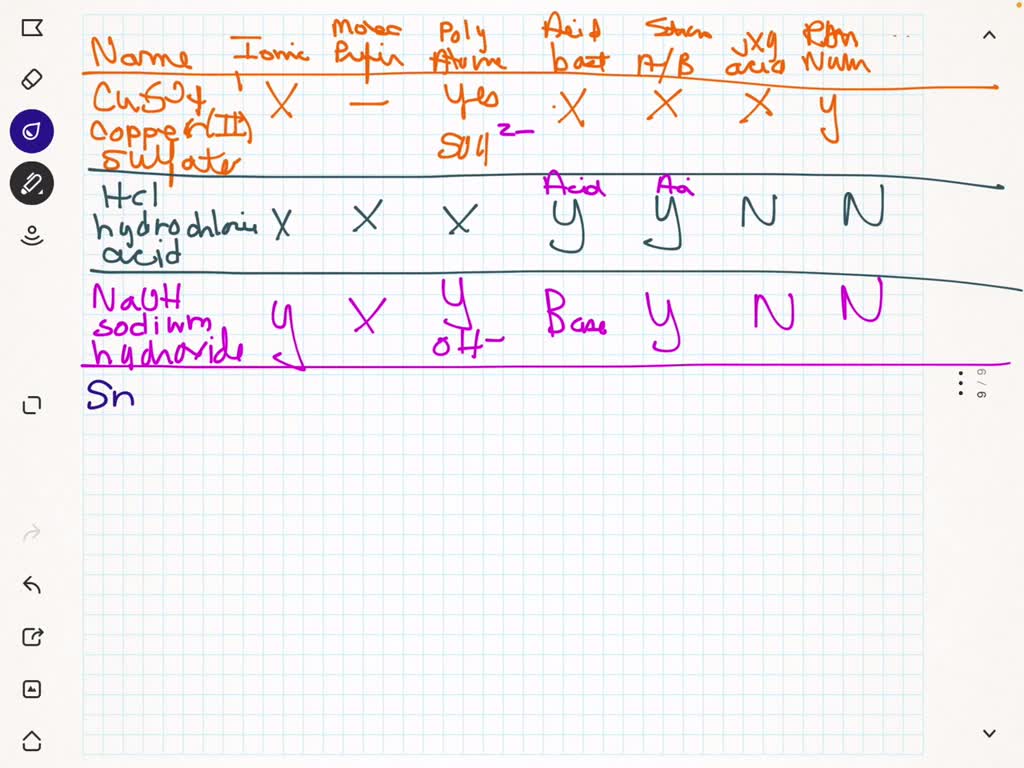 Name Ionic Molec Prefix Poly Atomic Acid base Strong A/B oxy acid Rom Num
CuSO4 X — Yes X X X y
copper(II) SO4 2-
sulfate
HCl Acid
hydrochloric X X X y y N N
acid
NaOH y X y Base y N N
sodium
hydroxide OH-
Sn
6/6